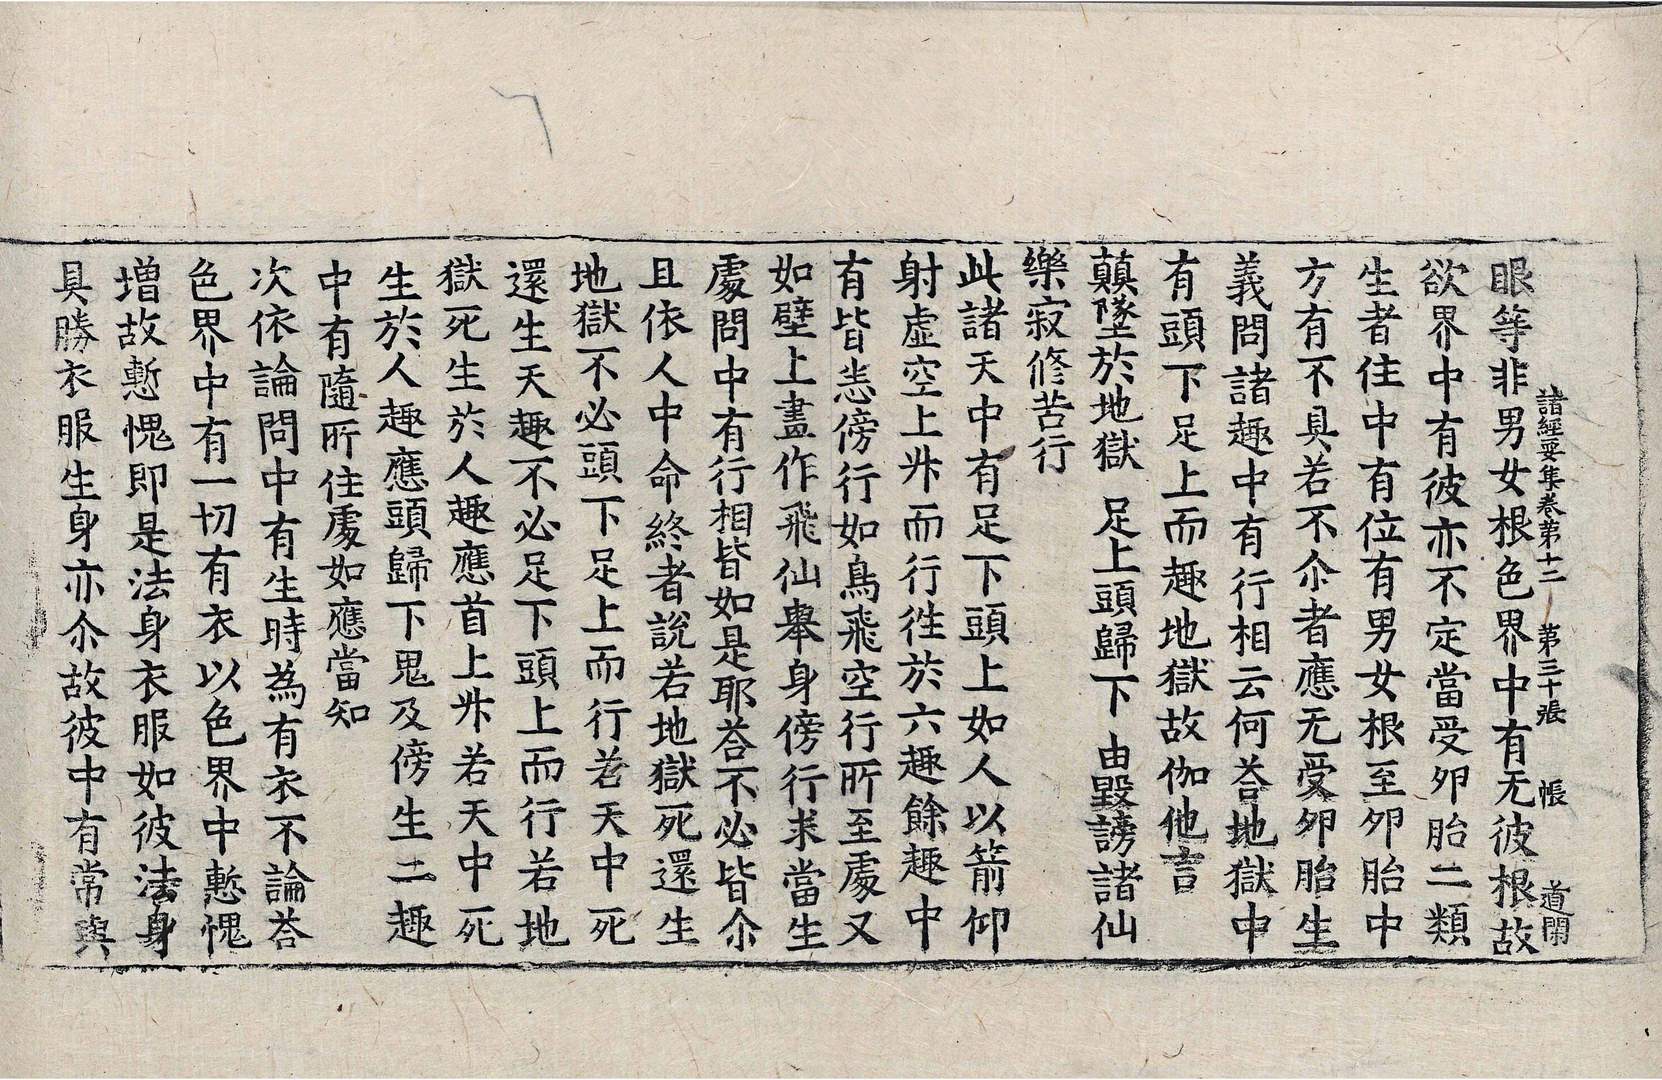 諸經要集卷第十二 第三十張 帳 道閑
眼等非男女根色界中有无彼根故
欲界中有彼亦不定當受夘胎二類
生者住中有位有男女根至夘胎中
方有不具若不尒者應无受夘胎生
義問諸趣中有行相云何荅地獄中
有頭下足上而趣地獄故伽他言
顛墜於地獄 足上頭歸下 由毀謗諸仙
樂寂修苦行
此諸天中有足下頭上如人以箭仰
射虛空上昇而行徃於六趣餘趣中
有皆悉傍行如鳥飛空行所至處又
如壁上畫作飛仙舉身傍行求當生
處問中有行相皆如是耶荅不必皆尒
且依人中命終者說若地獄死還生
地獄不必頭下足上而行若天中死
還生天趣不必足下頭上而行若地
獄死生於人趣應首上昇若天中死
生於人趣應頭歸下鬼及傍生二趣
中有隨所住處如應當知
次依論問中有生時為有衣不論荅
色界中有一切有衣以色界中慙愧
增故慙愧即是法身衣服如彼法身
具勝衣服生身亦尒故彼中有常與